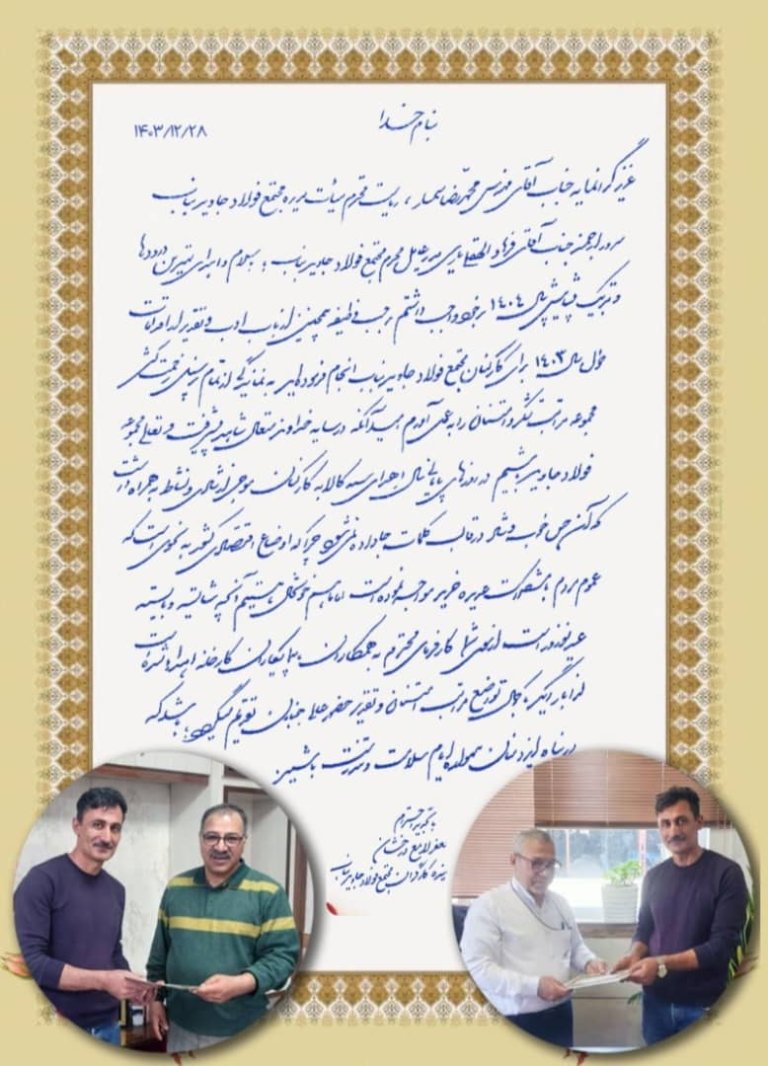 بنام خدا
۱۴۰۳/۱۲/۲۸
عزیز گرانمایه جناب آقای مهندس محمدرضا ، ریاست محترم هیأت مدیره مجتمع فولاد جاوید بناب
سرور ارجمند جناب آقای فرهاد مدیر عامل محترم مجتمع فولاد جاوید بناب ؛ با سلام و اهدای بهترین درودها
و تبریک پیشاپیش سال ۱۴۰۴ بر خود واجب دانستم بر حسب وظیفه همچنین از باب ادب و تقدیر از اقدامات
طول سال ۱۴۰۳ برای کارکنان مجتمع فولاد جاوید بناب انجام فرموده‌اید به نمایندگی از تمام پرسنل زحمت کش
مجموعه مراتب تشکر و امتنان را به عمل آورم امید آنکه در سایه خداوند متعال شاهد پیشرفت و تعالی مجموعه
فولاد جاوید باشیم در روزهای پایانی سال اهدای سبد کالا به کارکنان موجی از شادی و نشاط به همراه داشت
که آن حس خوب و شاد در قالب کلمات جا داده نمی‌شود چرا که اوضاع اقتصادی کشور به نحوی است که
عموم مردم با مشکلات عدیده خرید مواجه نموده است اما باز هم خوشحال هستیم آنچه شایسته و بایسته
عید نوروز است از سوی شما کارفرمای محترم به همکاران کارخانه اهدا شده است
لذا بار دیگر با کمال تواضع مراتب امتنان و تقدیر حضور عالی جنابان تقدیم میگردد ؛ باشد که
در پناه ایزد منان همواره ایام سلامت و تندرست باشید
با تجدید احترام
درخشان
نماینده کارگران مجتمع فولاد جاوید بناب